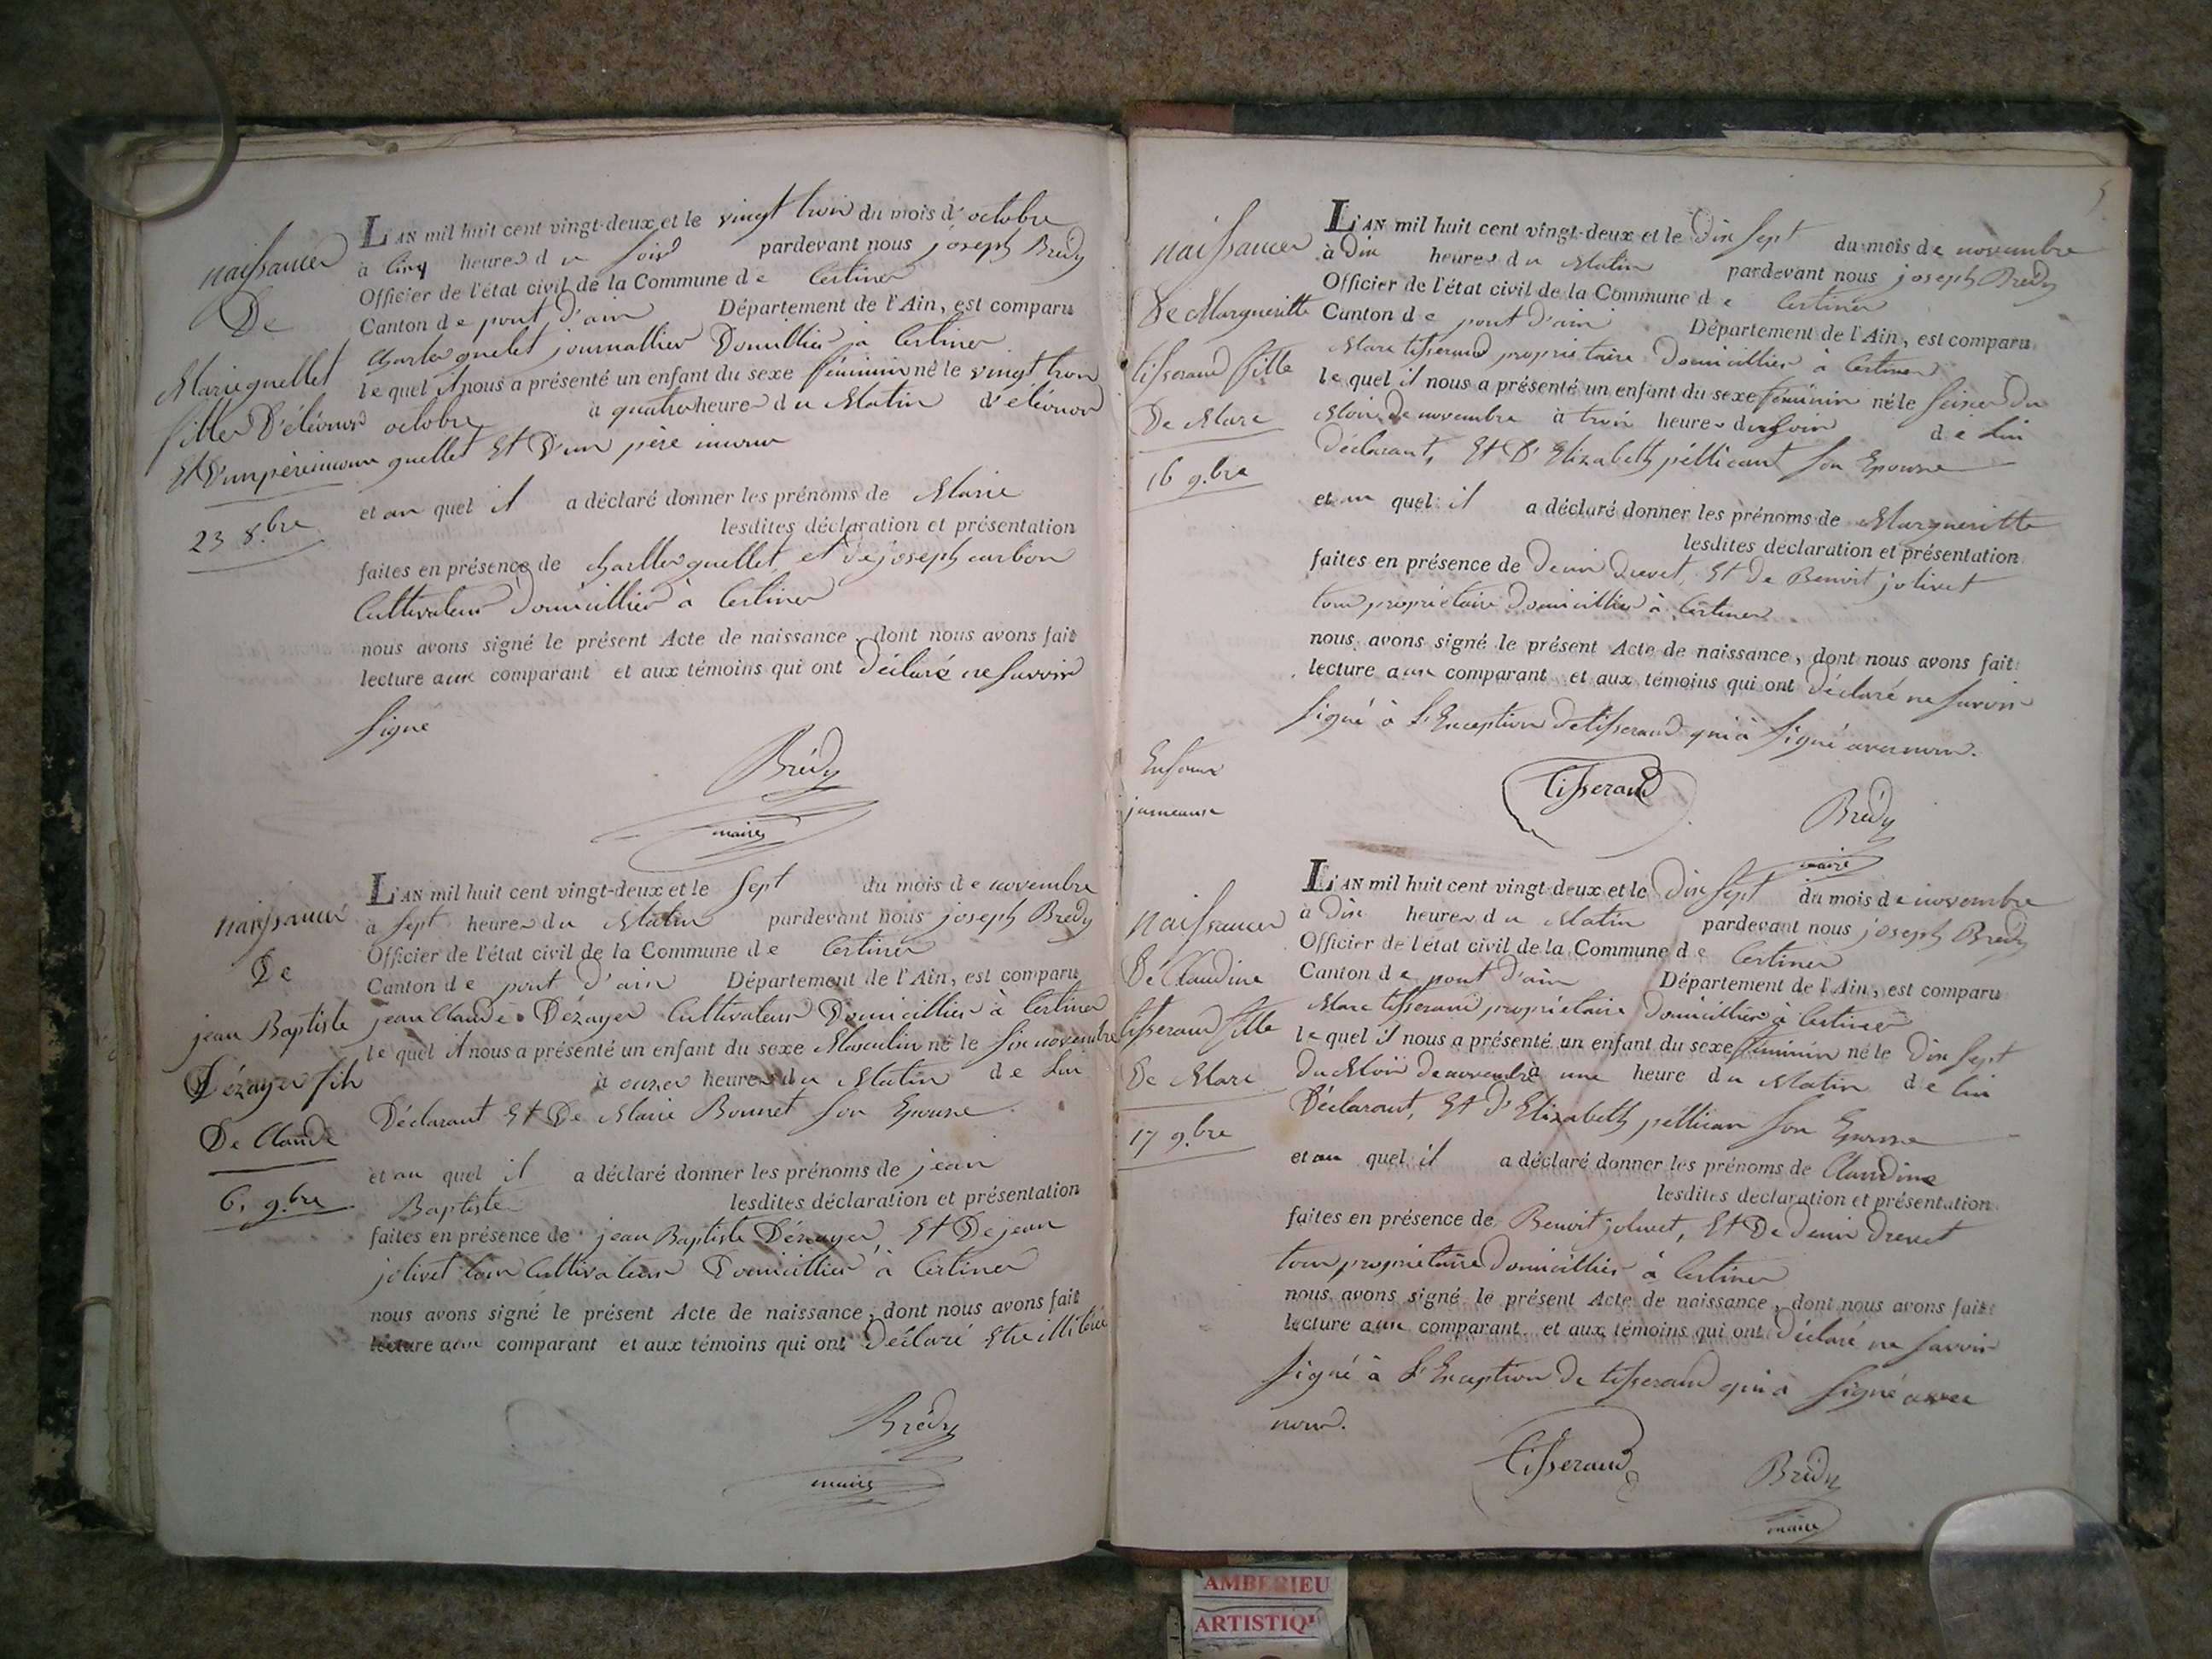 naissance
De
Marie guellet
fille D'éléonor
Et D'un père inconnu
23 8.bre
L'AN mil huit cent vingt-deux et le vingt trois du mois d'octobre
à cinq heures du soir pardevant nous joseph Brédy
Officier de l'état civil de la Commune de Certines
Canton de pont d'ain Département de l'Ain, est comparu
Charles guellet journallier Domicillié à Certines
lequel il nous a présenté un enfant du sexe féminin né le vingt trois
octobre à quatre heures du Matin d'éléonor
guellet Et D'un père inconnu
et au quel il a déclaré donner les prénoms de Marie
lesdites déclaration et présentation
faites en présence de charles guellet, et de joseph carbon
Cultivateurs Domicilliés à Certines
nous avons signé le présent Acte de naissance, dont nous avons fait
lecture aux comparant et aux témoins qui ont déclaré ne savoir
signé
Brédy
maire
naissance
De
jean Baptiste
Dézayer fils
De Claude
6. 9.bre
L'AN mil huit cent vingt-deux et le sept du mois de novembre
à sept heures du Matin pardevant nous joseph Brédy
Officier de l'état civil de la Commune de Certines
Canton de pont d'ain Département de l'Ain, est comparu
jean Claude Dézayer Cultivateur Domicillié à Certines
lequel il nous a présenté un enfant du sexe Masculin né le six novembre
à onze heures du Matin de lui
Déclarant Et De Marie Bonnet son Epouse
et au quel il a déclaré donner les prénoms de jean
Baptiste lesdites déclaration et présentation
faites en présence de jean Baptiste Dézayer, Et De jean
jolivet tous Cultivateurs Domicilliés à Certines
nous avons signé le présent Acte de naissance, dont nous avons fait
lecture aux comparant et aux témoins qui ont Déclaré Etre illitéré
Brédy
maire
5
naissance
De Margueritte
tisserand fille
De Marc
16 9.bre
L'AN mil huit cent vingt-deux et le Dix sept du mois de novembre
à Dix heures du Matin pardevant nous joseph Brédy
Officier de l'état civil de la Commune de Certines
Canton de pont d'ain Département de l'Ain, est comparu
Marc tisserand proprietaire Domicillié à Certines
lequel il nous a présenté un enfant du sexe féminin né le seize du
Mois de novembre à trois heures du soir de lui
Déclarant, Et D'Elizabeth péllicant son Epouse
et au quel il a déclaré donner les prénoms de Margueritte
lesdites déclaration et présentation
faites en présence de Denis Drevet, Et De Benoit jolivet
tous proprietaire Domicilliés à Certines
nous avons signé le présent Acte de naissance, dont nous avons fait
lecture aux comparant et aux témoins qui ont Déclaré ne savoir
signé à L'Exception de tisserand qui à signé avec nous.
Enfans
jumeaux
tisserand
Brédy
maire
naissance
De Claudine
tisserand fille
De Marc
17 9.bre
L'AN mil huit cent vingt-deux et le Dix sept du mois de novembre
à Dix heures du Matin pardevant nous joseph Brédy
Officier de l'état civil de la Commune de Certines
Canton de pont d'ain Département de l'Ain, est comparu
Marc tisserand proprietaire Domicillié à Certines
lequel il nous a présenté un enfant du sexe féminin né le Dix sept
Du Mois de novembre à une heure du Matin de lui
Déclarant, Et d'Elizabeth péllican son Epouse
et au quel il a déclaré donner les prénoms de Claudine
lesdites déclaration et présentation
faites en présence de Benoit jolivet, Et De Denis Drevet
tous proprietaire Domicilliés à Certines
nous avons signé le présent Acte de naissance, dont nous avons fait
lecture aux comparant et aux témoins qui ont Déclaré ne savoir
signé à L'Exception De tisserand qui à signé avec
nous.
tisserand
Brédy
maire
AMBERIEU
ARTISTIQ